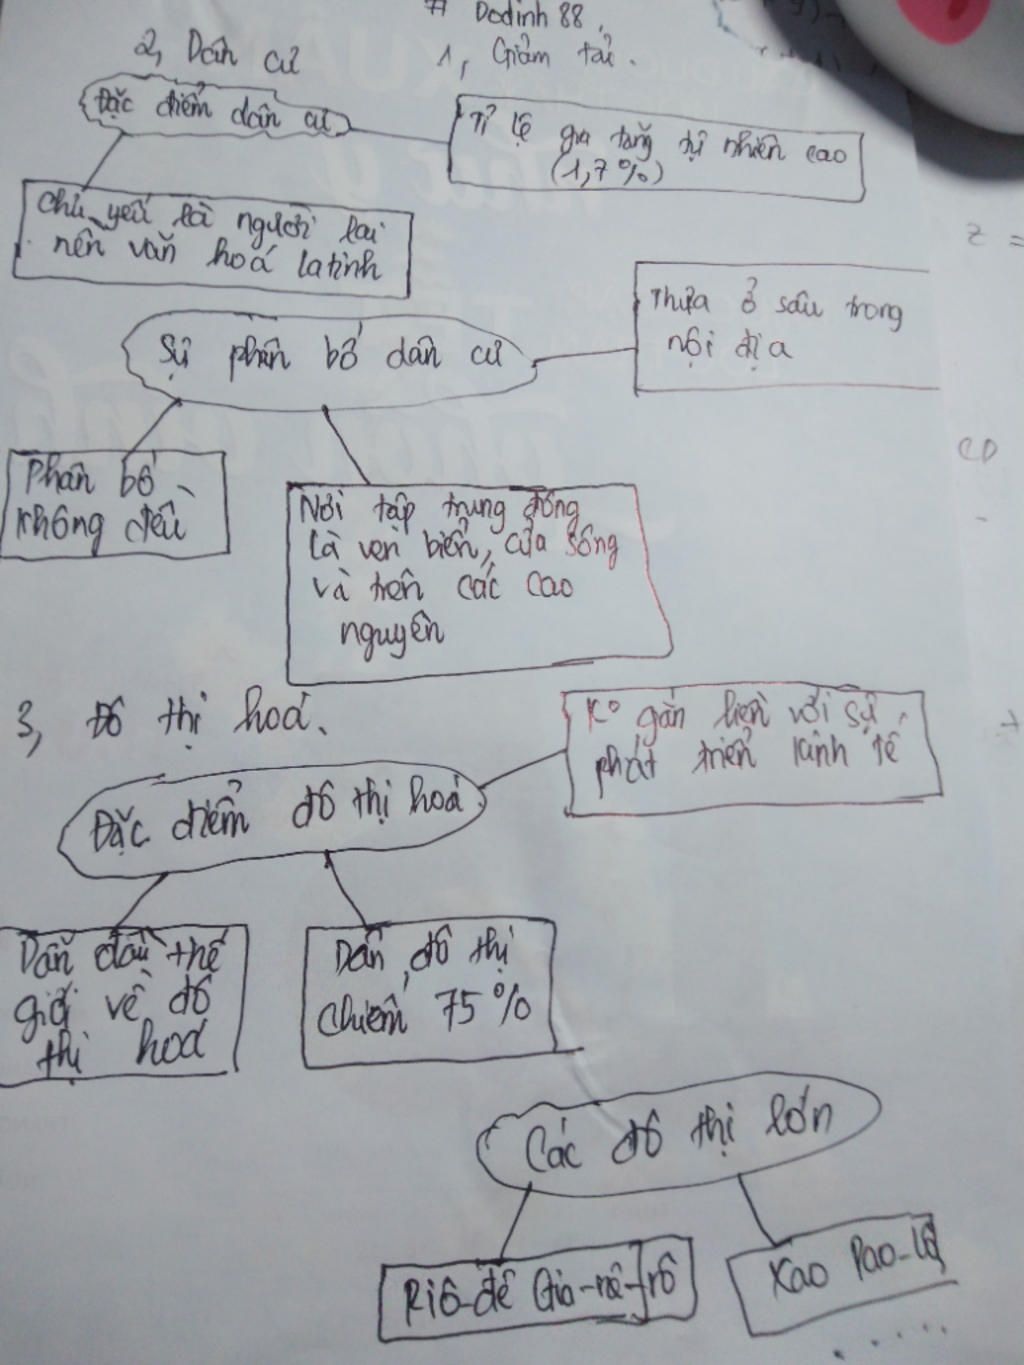 # Dodinh 88.
1, Giảm tải.
2, Dân cư
Đặc điểm dân cư
Tỉ lệ gia tăng tự nhiên cao
(1,7%)
chủ yếu là người lai
nền văn hoá latinh
Sự phân bố dân cư
Thưa ở sâu trong
nội địa
Phân bố
không đều
Nơi tập trung đông
là ven biển, cửa sông
và trên các cao
nguyên
3, Đô thị hoá.
Đặc điểm đô thị hoá
Ko gắn liền với sự
phát triển kinh tế
Dẫn đầu thế
giới về đô
thị hoá
Dân đô thị
chiếm 75%
Các đô thị lớn
Riô-đê Gia-nê-rô
Xao Pao-lô
z =
CD